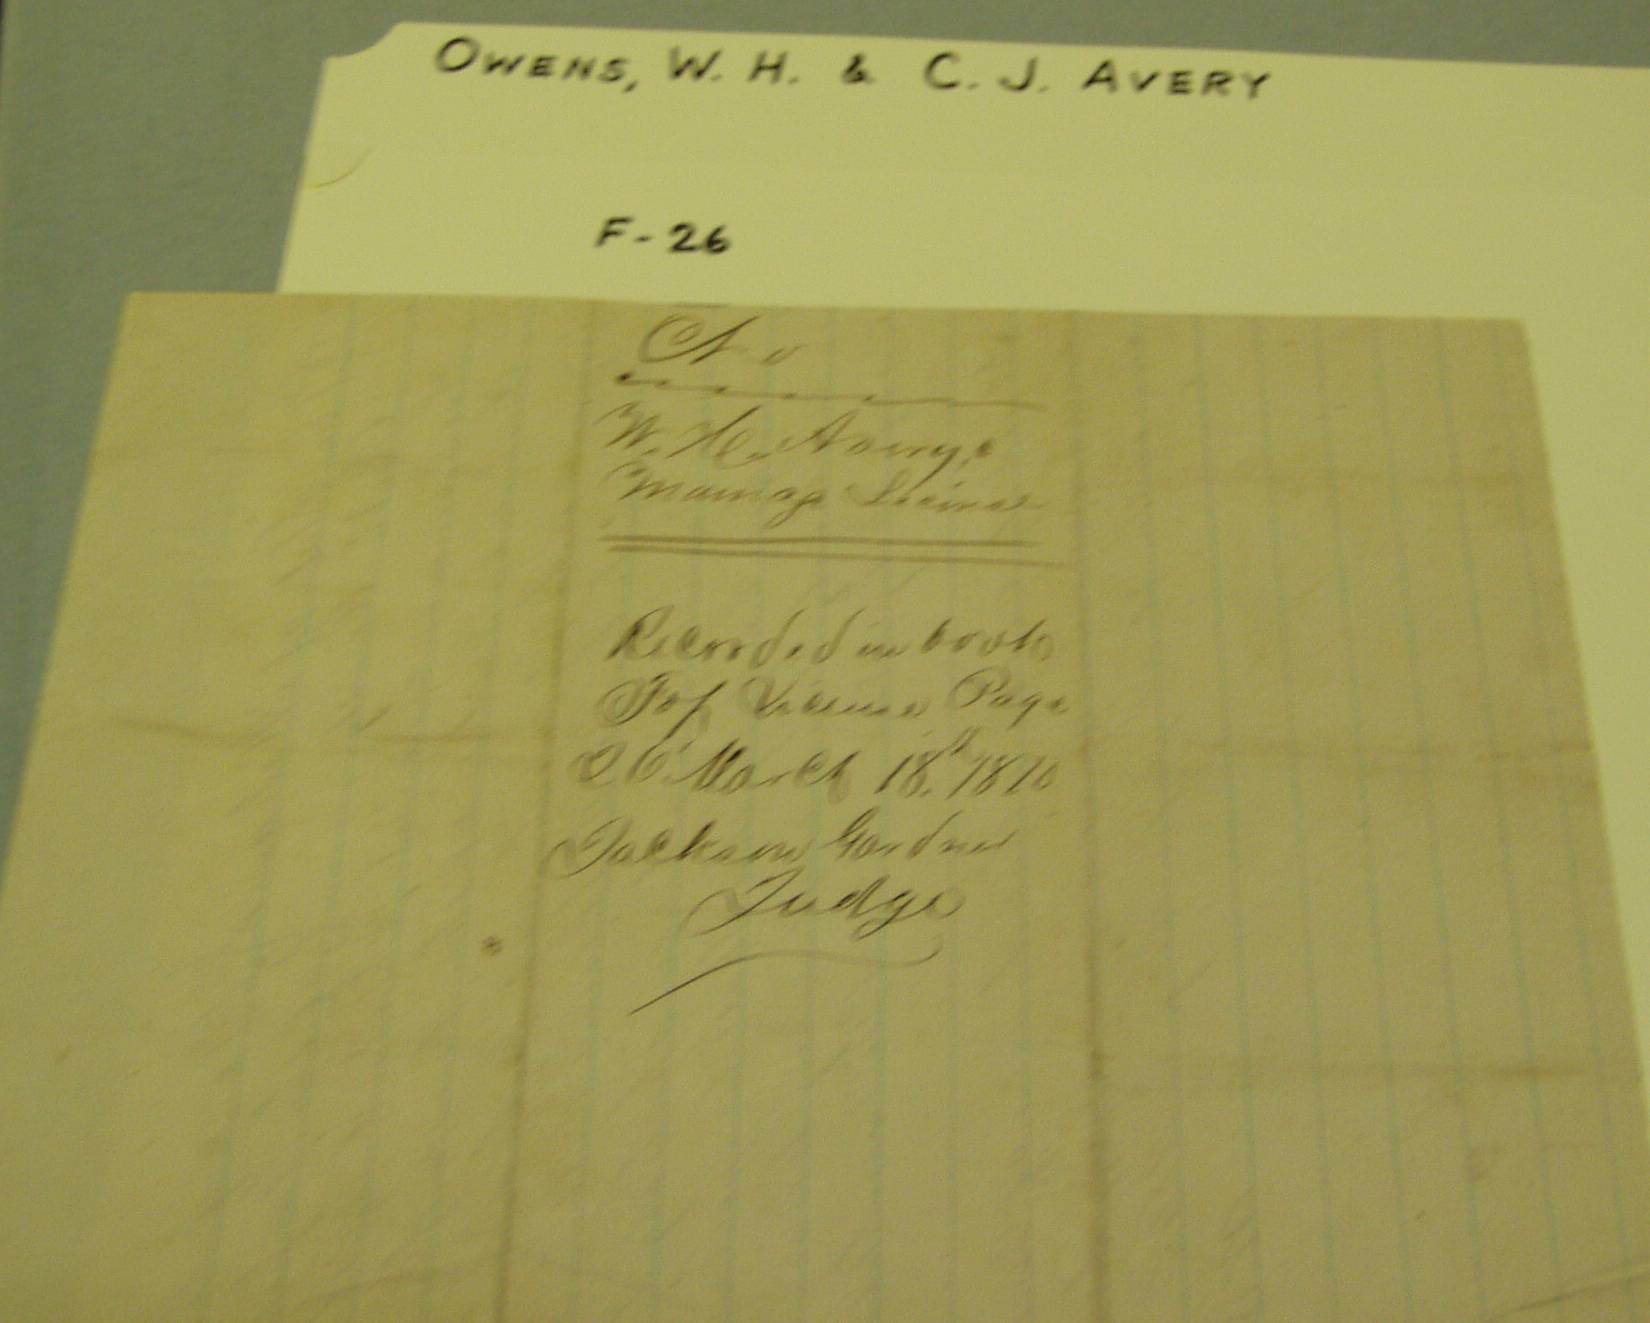 OWENS, W. H. & C. J. AVERY
F-26
No
W. H. Avery,s
Marriage License
Recorded in book
F of License Page
26 March 18th 1870
Jackson Gardner
Judge